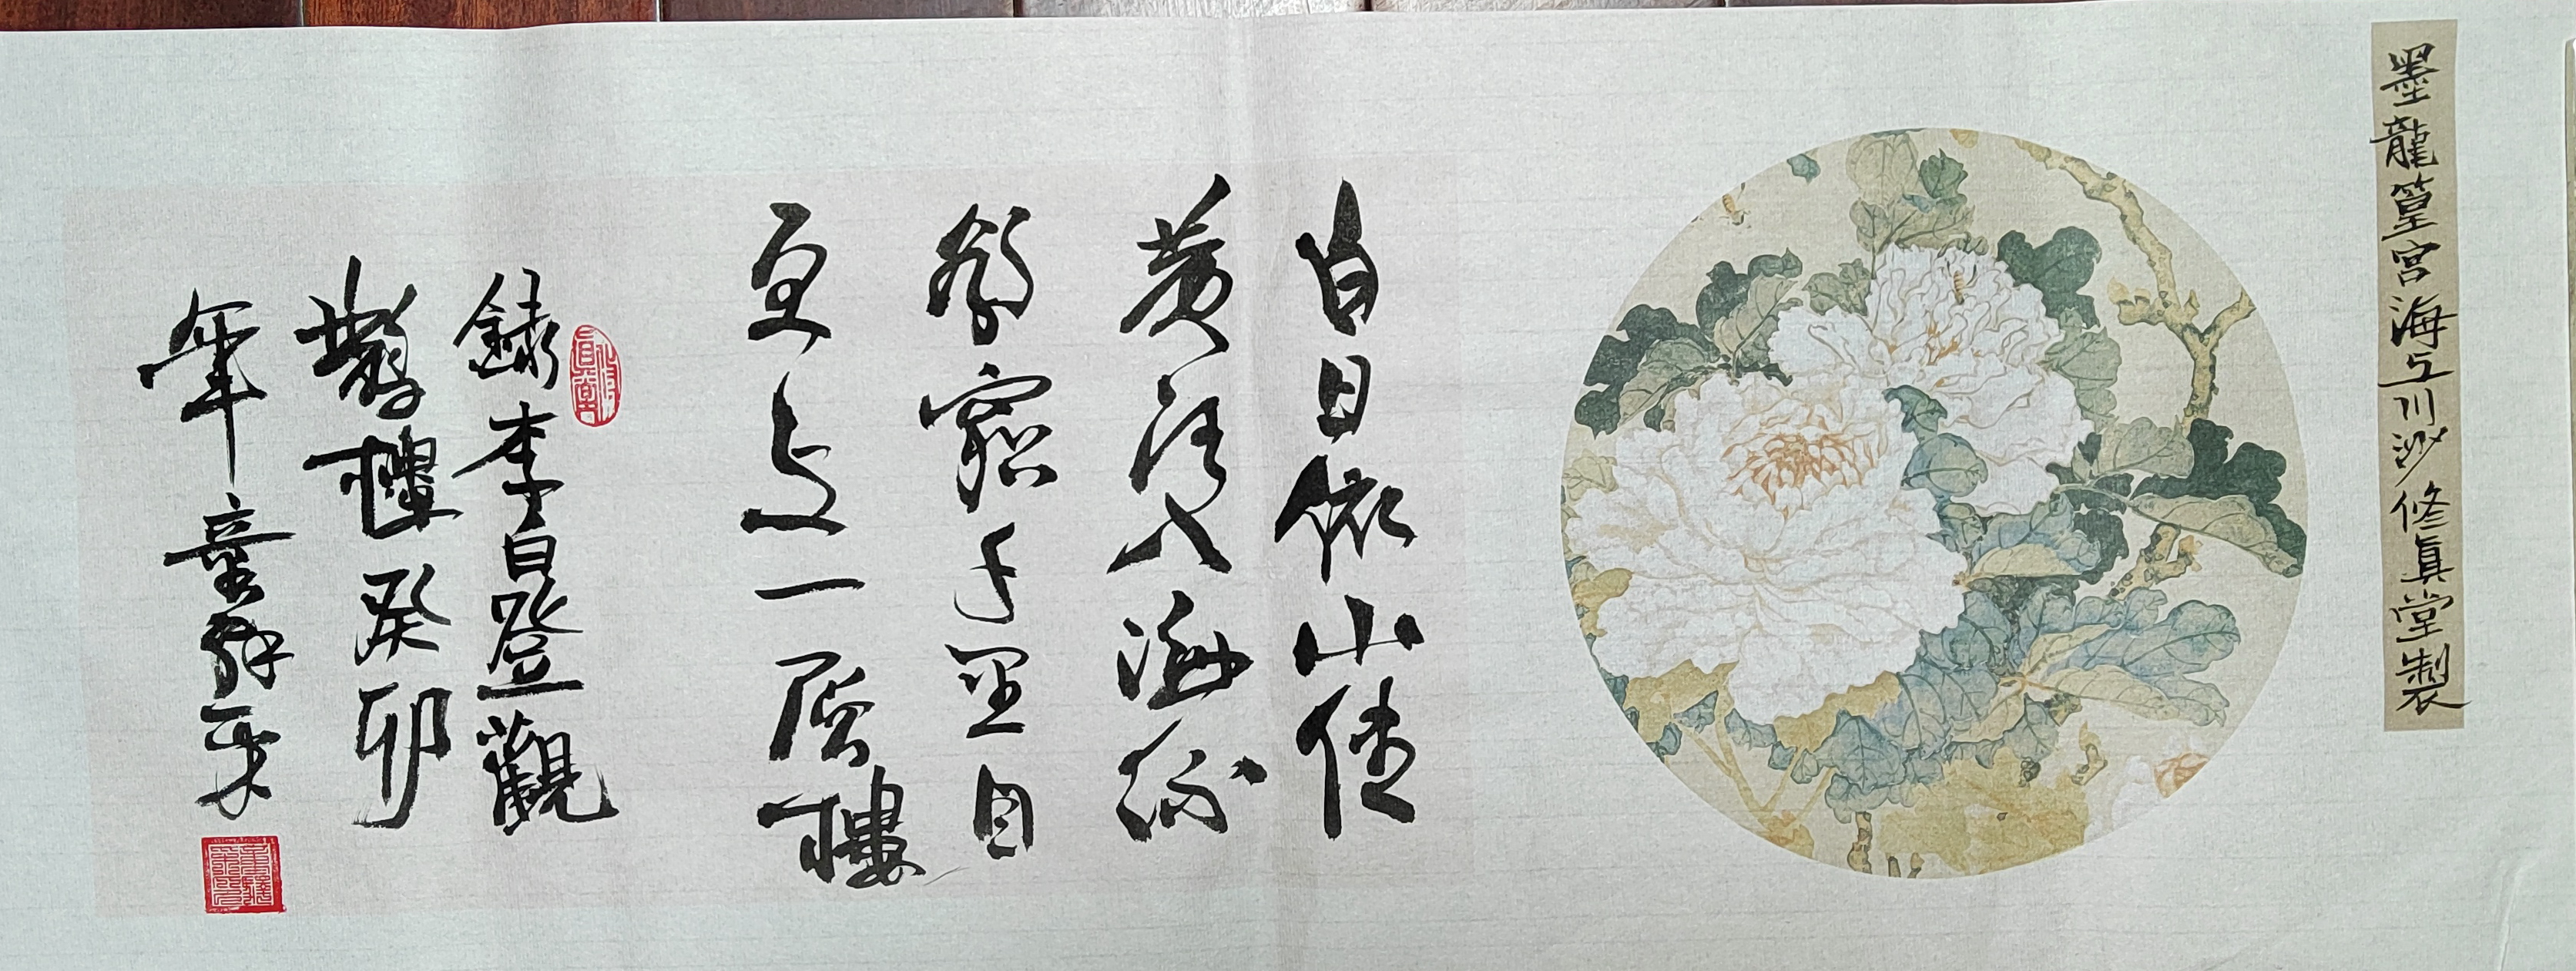 墨龍篁宮海上川沙修眞堂製
白日依山
黄河入海流
欲窮千里目
更上一層樓
錄李白登觀
樓癸卯
年童
修眞堂